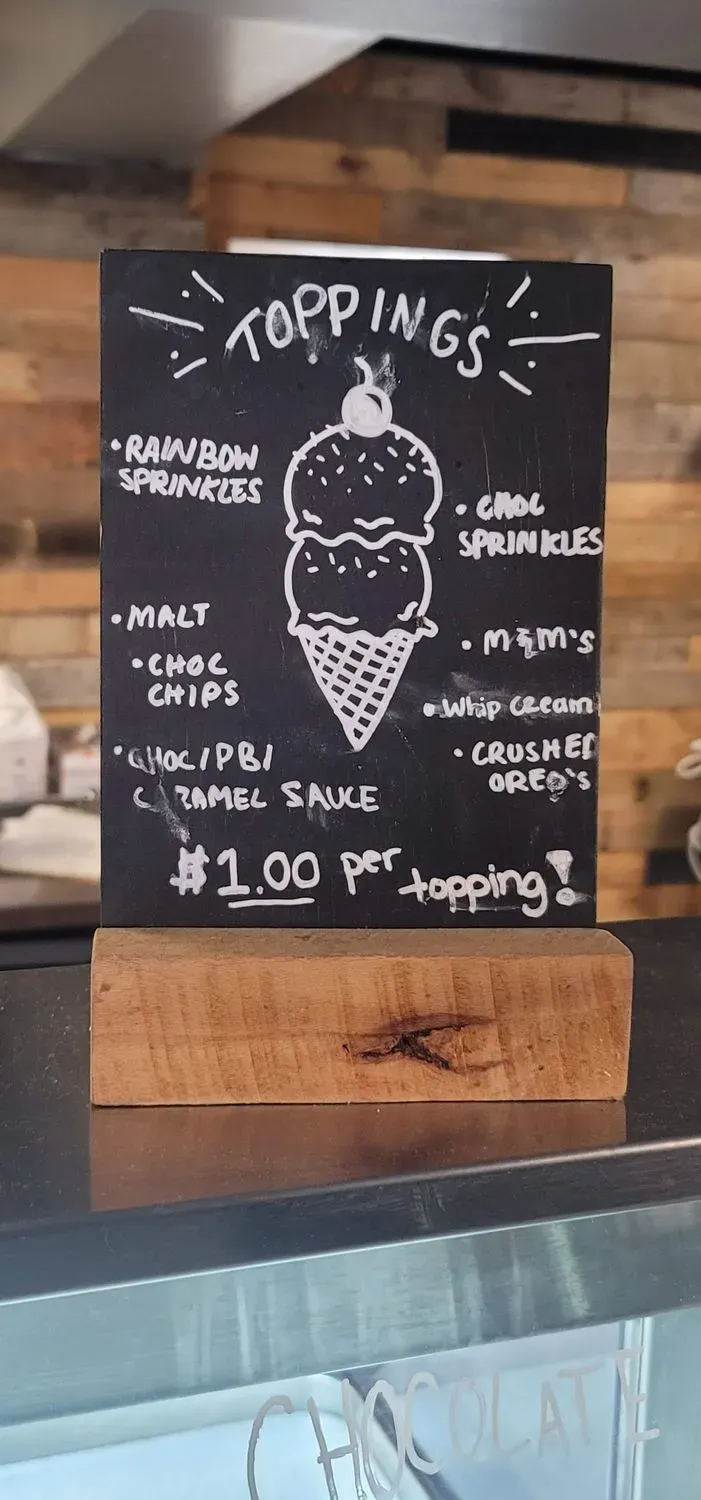 TOPPINGS
• RAINBOW
SPRINKLES
• CHOC
SPRINKLES
• MALT
• CHOC
CHIPS
• M&M'S
• Whip cream
• CHOC/PB/
CARAMEL SAUCE
• CRUSHED
OREO'S
$1.00 per topping!
CHOCOLATE